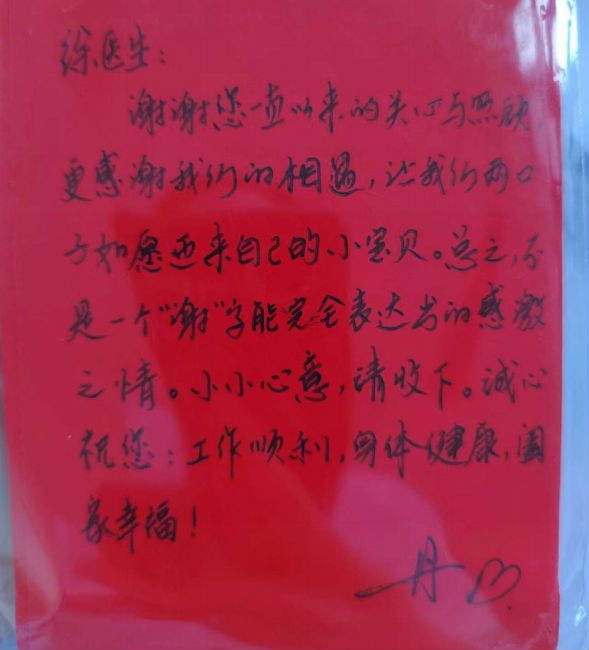 徐医生：
谢谢您一直以来的关心与照顾,
更感谢我们的相遇，让我们两口
子如愿迎来自己的小宝贝。总之，不
是一个"谢"字能完全表达出的感激
之情。小小心意，请收下。诚心
祝您：工作顺利，身体健康，阖
家幸福！
——丹